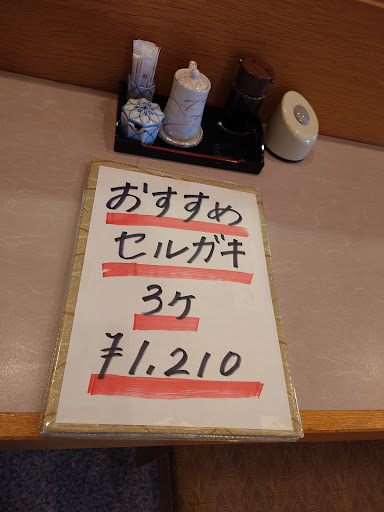 おすすめ
セルガキ
3ケ
¥1.210